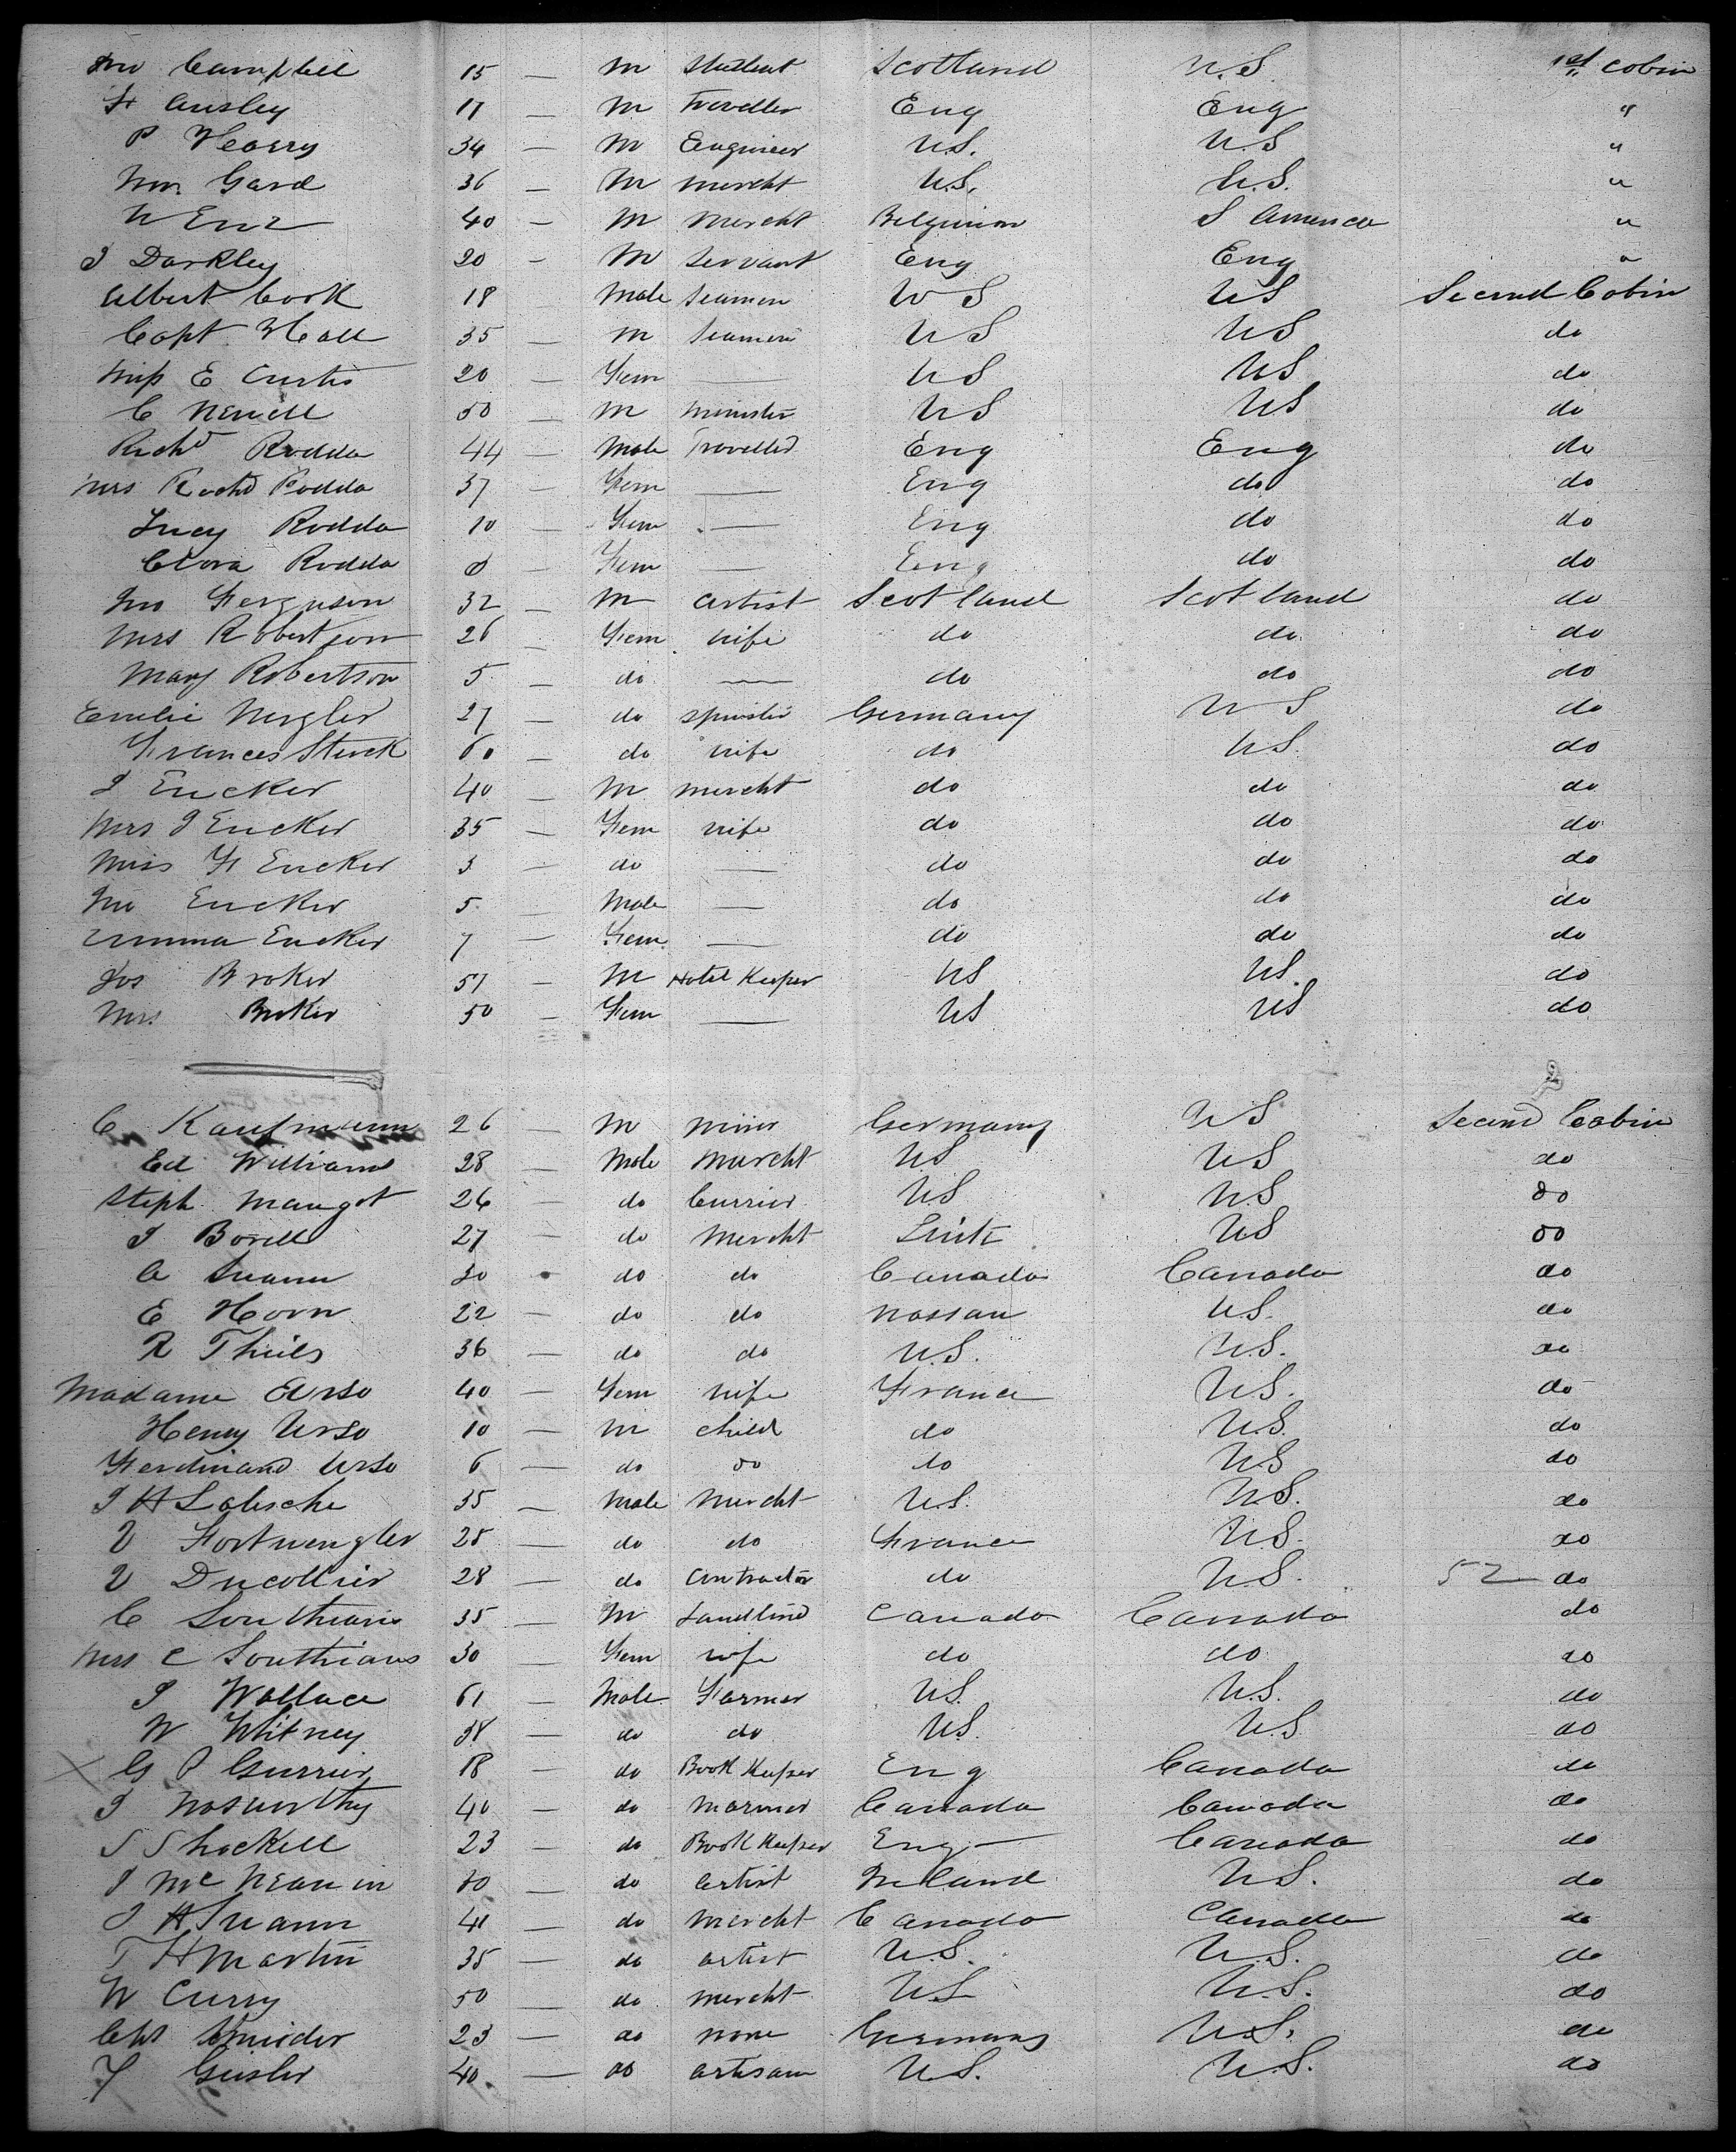 Jno Campbell 15 — M Student Scotland U.S. 1st Cabin
F Ansley 17 — M Traveller Eng Eng "
P Hearry 34 — M Engineer U.S. U.S "
Wm. Gard 36 — M Mercht U.S. U.S. "
40 — M Mercht Belgium S America "
J Darkley 20 — M Servant Eng Eng "
Albert Cook 18 Male Seaman U S US Second Cabin
Capt. Hall 35 — M Seaman US US do
Miss E Curtis 20 — Fem — US US do
C Newell 50 — M Minister US US do
Richd Rodda 44 — Male Traveller Eng Eng do
Mrs Richd Rodda 37 — Fem — Eng do do
Lucy Rodda 10 — Fem — Eng do do
Clara Rodda 8 — Fem — Eng do do
Jno Ferguson 32 — M Artist Scotland Scotland do
Mrs Robertson 26 — Fem wife do do do
Mary Robertson 5 — do — do do do
Emelie 27 — do spinster Germany US do
Frances Sturk 60 — do wife do US. do
J Eucker 40 — M mercht do do do
Mrs J Eucker 35 — Fem wife do do do
Miss F Eucker 3 — do — do do do
Jno Eucker 5 — Male — do do do
Emma Eucker 7 — Fem — do do do
Jos Broker 51 — M Hotel Keeper US US. do
Mrs. Broker 50 — Fem — US US do
C Kaufmann 26 — M Miner Germany US Second Cabin
Ed Williams 28 — Male Mercht US US do
Steph Maugot 26 — do Currier US US do
J Borell 27 — do Mercht US do
A Suann 30 do do Canada Canada do
E Horn 22 — do do Nassau US. do
R Thiels 36 — do do U.S. U.S. do
Madame Urso 40 — Fem wife France US. do
Henry Urso 10 — M child do U.S. do
Ferdinand Urso 6 — do do do US do
J H Lobsche 35 — Male Mercht U.S. U.S. do
V Fortwengler 25 — do do France U.S. do
V Ducollier 28 — do Contractor do U.S. 52 — do
C Southians 35 — M Landlord Canada Canada do
Mrs C Southians 30 — Fem wife do do do
J Wallace 61 — Male Farmer US. U.S. do
W Whitney 38 — do do US. U.S do
X G P Gurrier 18 — do Book Keeper Eng Canada do
J Nosworthy 40 — do Mariner Canada Canada do
S Shockell 23 — do Book Keeper Eng — Canada do
J Mc 40 — do Artist Ireland U.S. do
J H Suann 41 — do Mercht Canada Canada do
T H Martin 35 — do artist U.S. U.S. do
W Curry 50 — do mercht US U.S. do
Chs Smider 23 — do none Germany U.S. do
F Geisler 40 — do artisan U.S. U.S. do